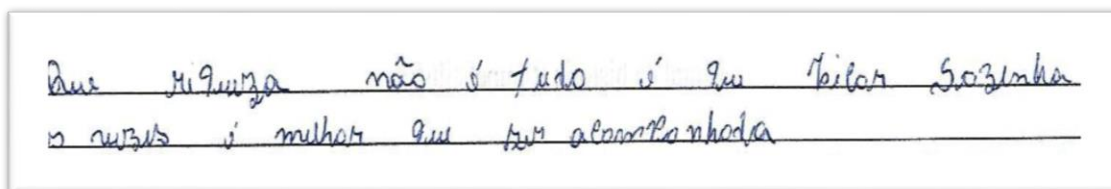 Que riqueza não é tudo é que ficar sozinha
as vezes é melhor que ser acompanhada